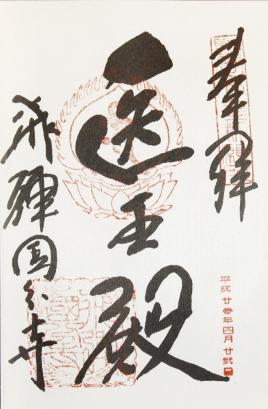 奉拝
医王殿
飛騨国分寺
平成廿五年四月廿弐日